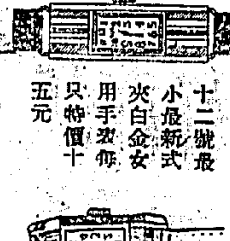 十二號最
小最新式
夾白金女
用手表每
只特價十
五元